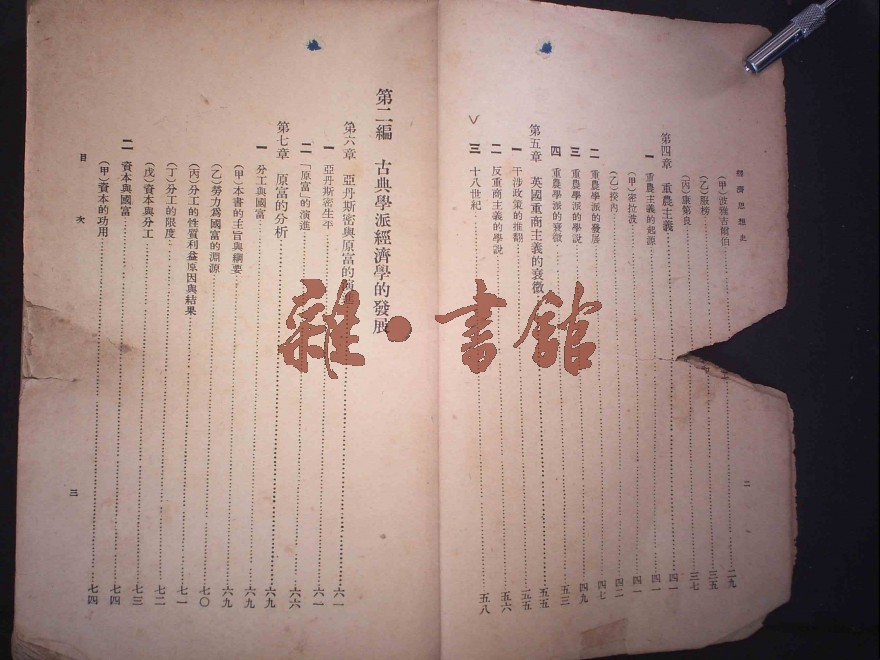 經濟思想史
(甲)波雅吉爾伯……二九
(乙)服榜……三五
(丙)康第良……三七
第四章 重農主義……四一
一 重農主義的起源……四一
(甲)密拉波……四一
(乙)揆內……四二
二 重農學派的發展……四七
三 重農學派的學說……四九
四 重農學派的衰微……五三
第五章 英國重商主義的衰微……五五
一 干涉政策的推翻……五五
二 反重商主義的學說……五六
三 十八世紀……五八
二
第二編 古典學派經濟學的發展
第六章 亞丹斯密與原富的演進……六一
一 亞丹斯密生平……六一
二 「原富」的演進……六六
第七章 原富的分析……六九
一 分工與國富……六九
(甲)本書的主旨與綱要……六九
(乙)勞力爲國富的淵源……七〇
(丙)分工的性質利益原因與結果……七一
(丁)分工的限度……七二
(戊)資本與分工……七三
二 資本與國富……七四
(甲)資本的功用……七四
目次
三
雜·書館